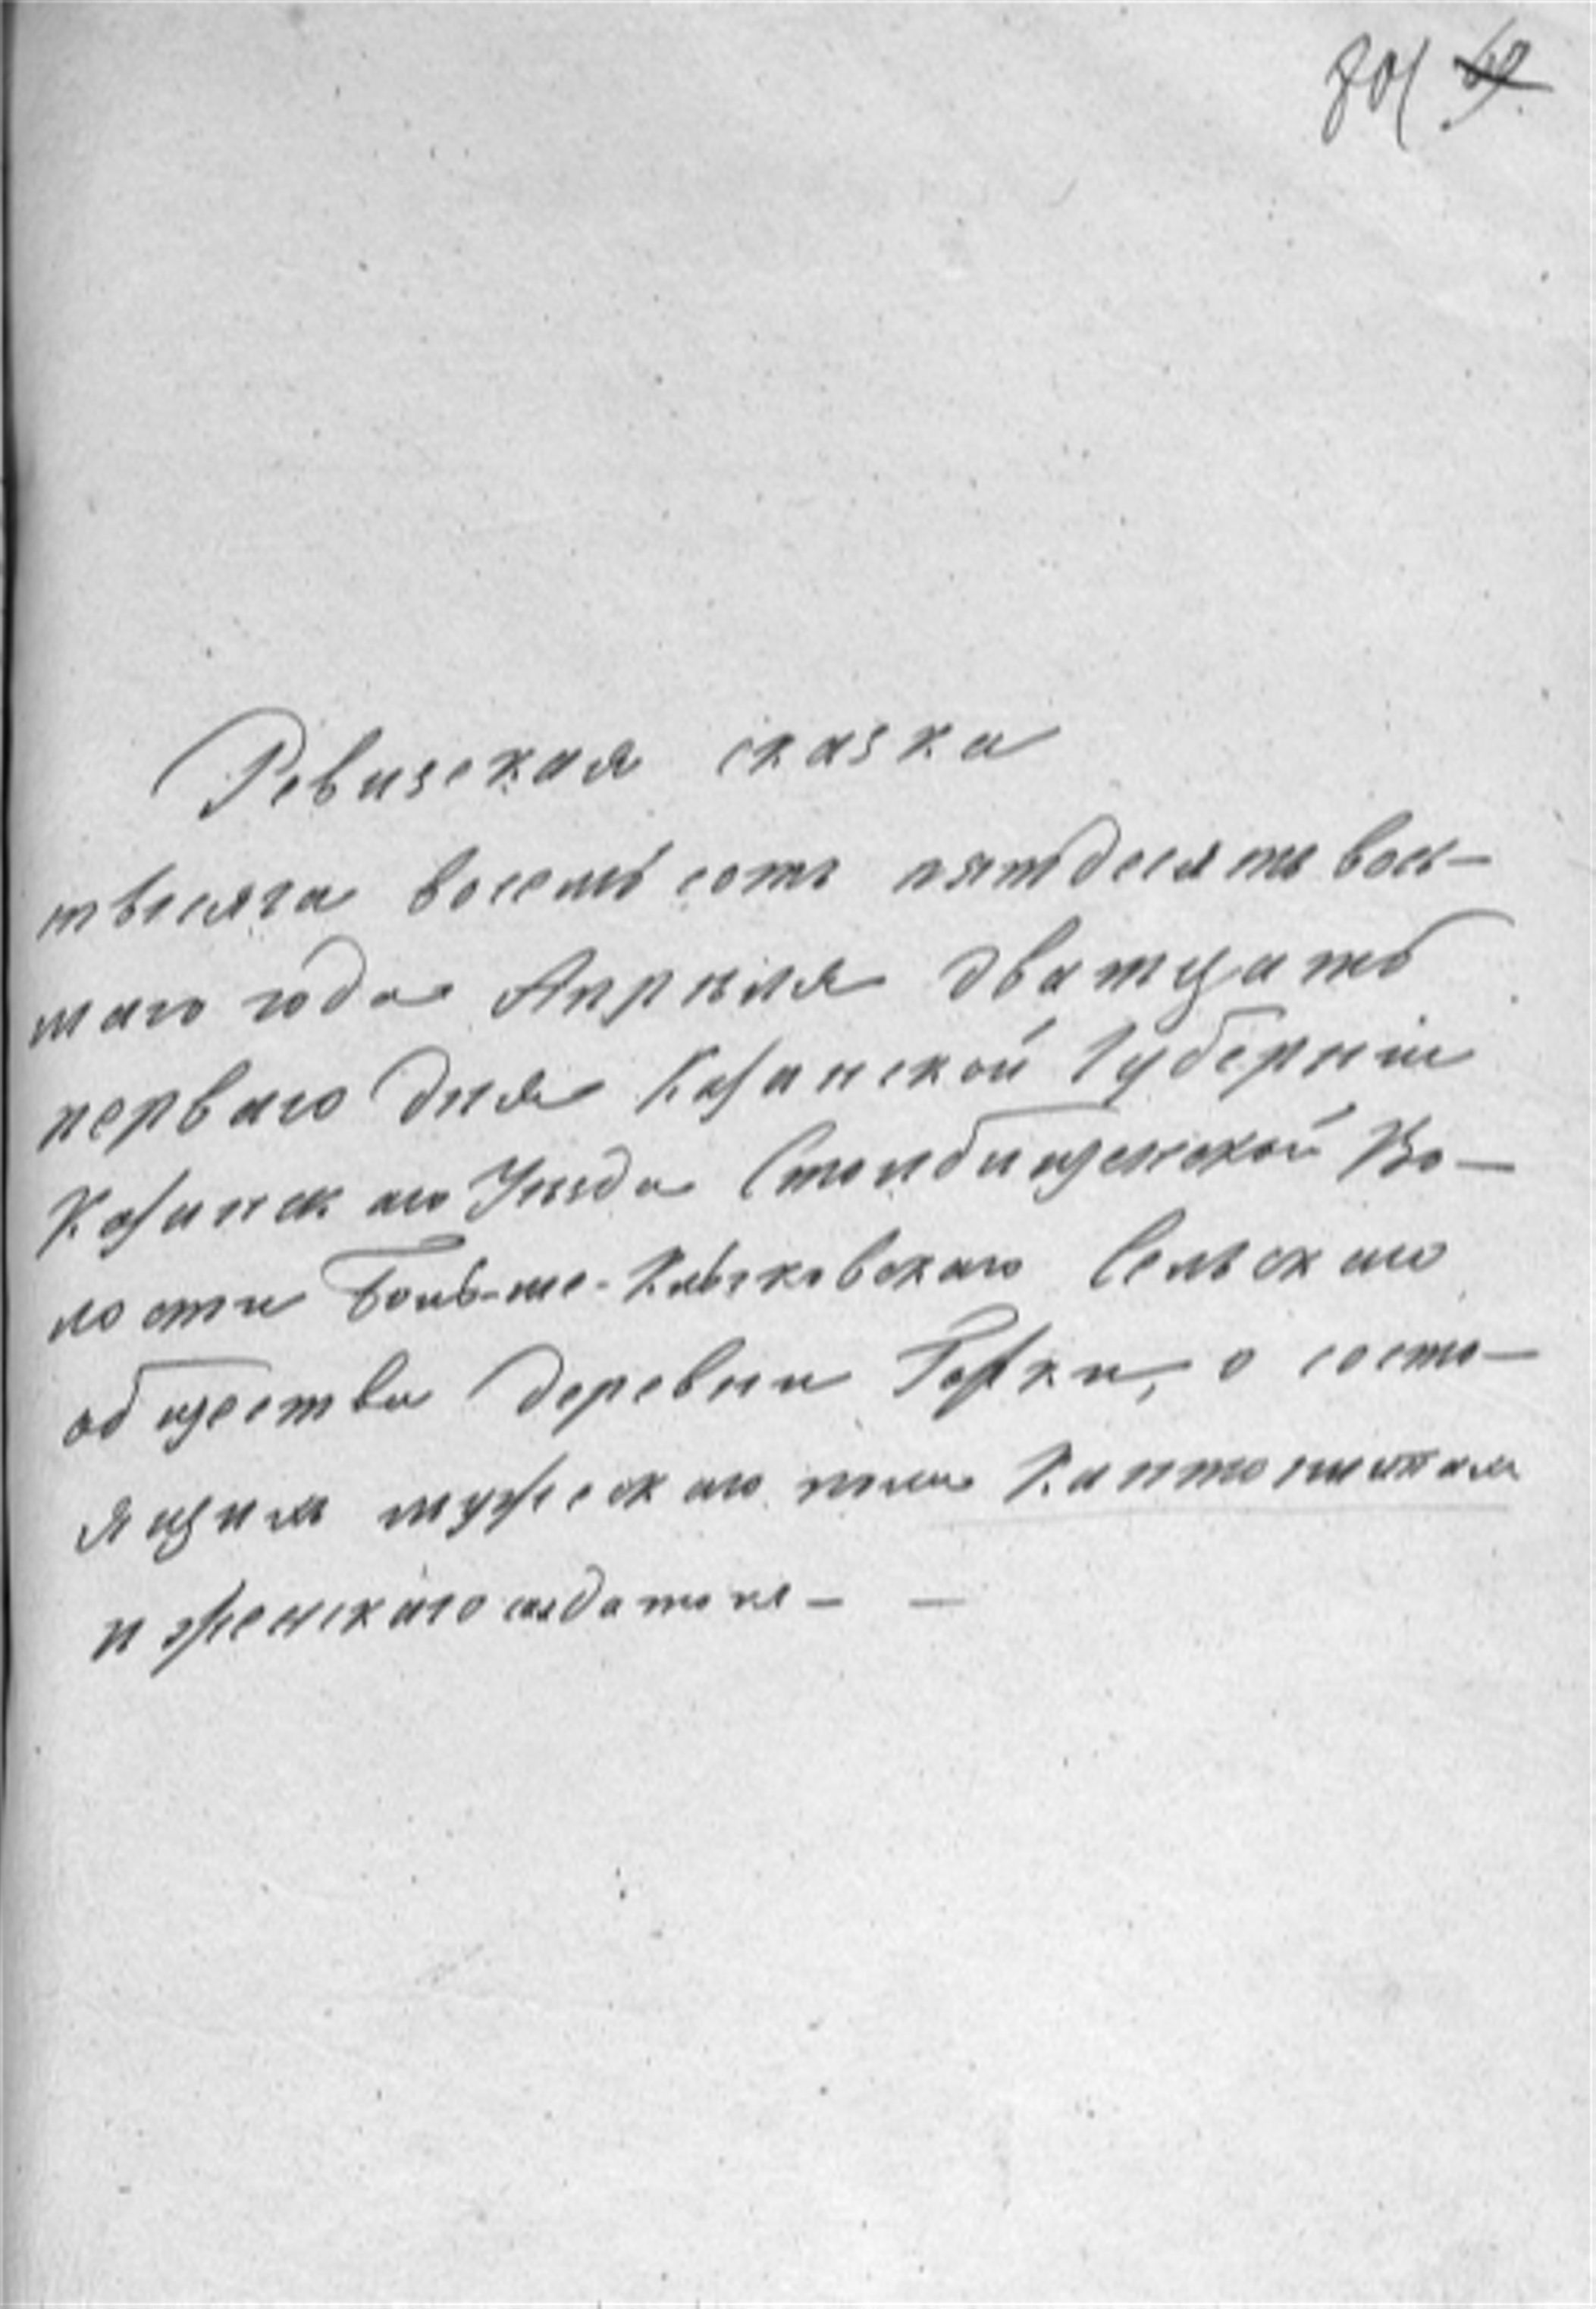 801
Ревизская сказка
тысяча восемь сотъ пятдесятъ вось-
маго года Апрѣля дватцать
перваго дня Казанской Губерніи
Казанскаго Уѣзда Столбищенской Во-
лости Больше-Клыковскаго Сельскаго
общества деревни Горки, о состо-
ящихъ мужескаго пола Кантонистахъ
и женскаго